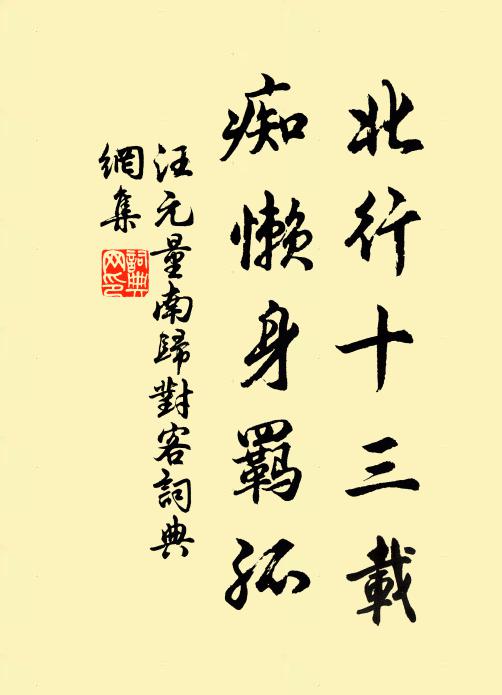 北行十三載
痴懶身羈孤
汪元量南歸對客詞典
網集
詞典
网印